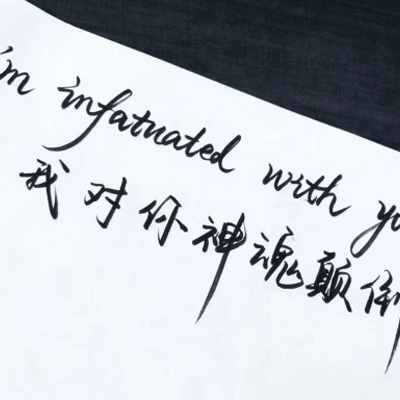 i'm infatuated with yo
我对你神魂颠倒